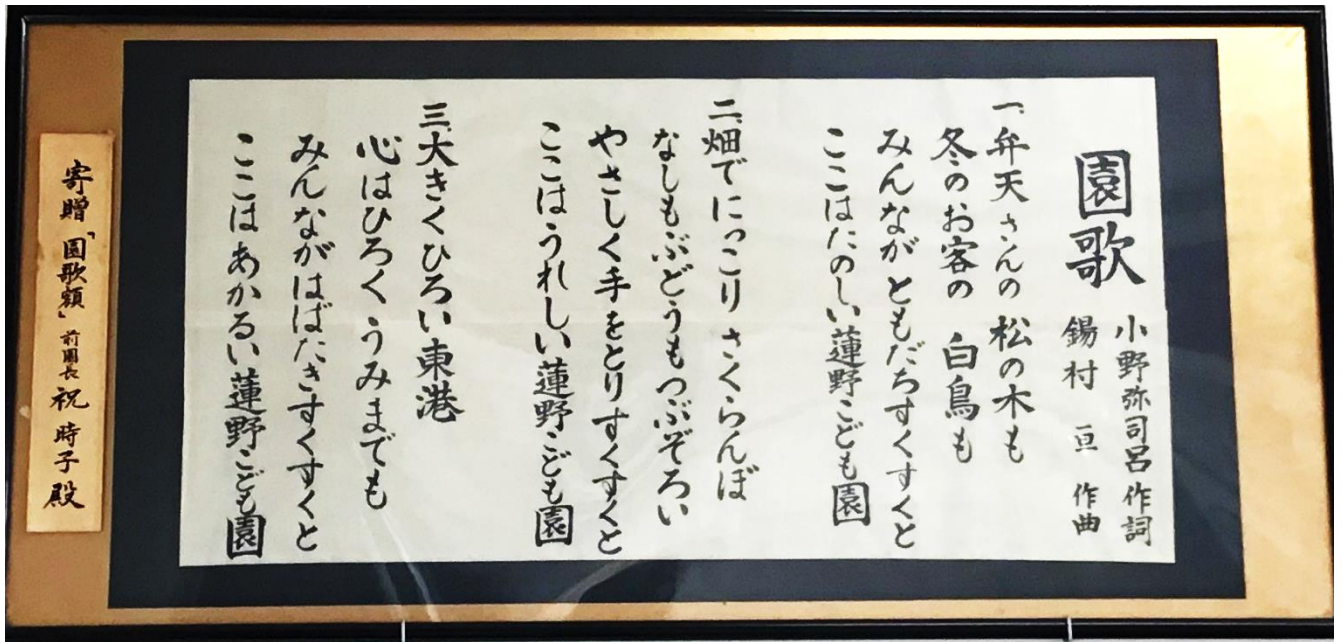 園歌
小野弥司呂 作詞
錫村 亘 作曲
一、弁天さんの 松の木も
冬のお客の 白鳥も
みんなが ともだちすくすくと
ここはたのしい蓮野こども園
二、畑でにっこり さくらんぼ
なしもぶどうもつぶぞろい
やさしく手をとりすくすくと
ここはうれしい蓮野こども園
三、大きくひろい東港
心はひろく うみまでも
みんながはばたきすくすくと
ここはあかるい蓮野こども園
寄贈「園歌額」前園長 祝 時子 殿